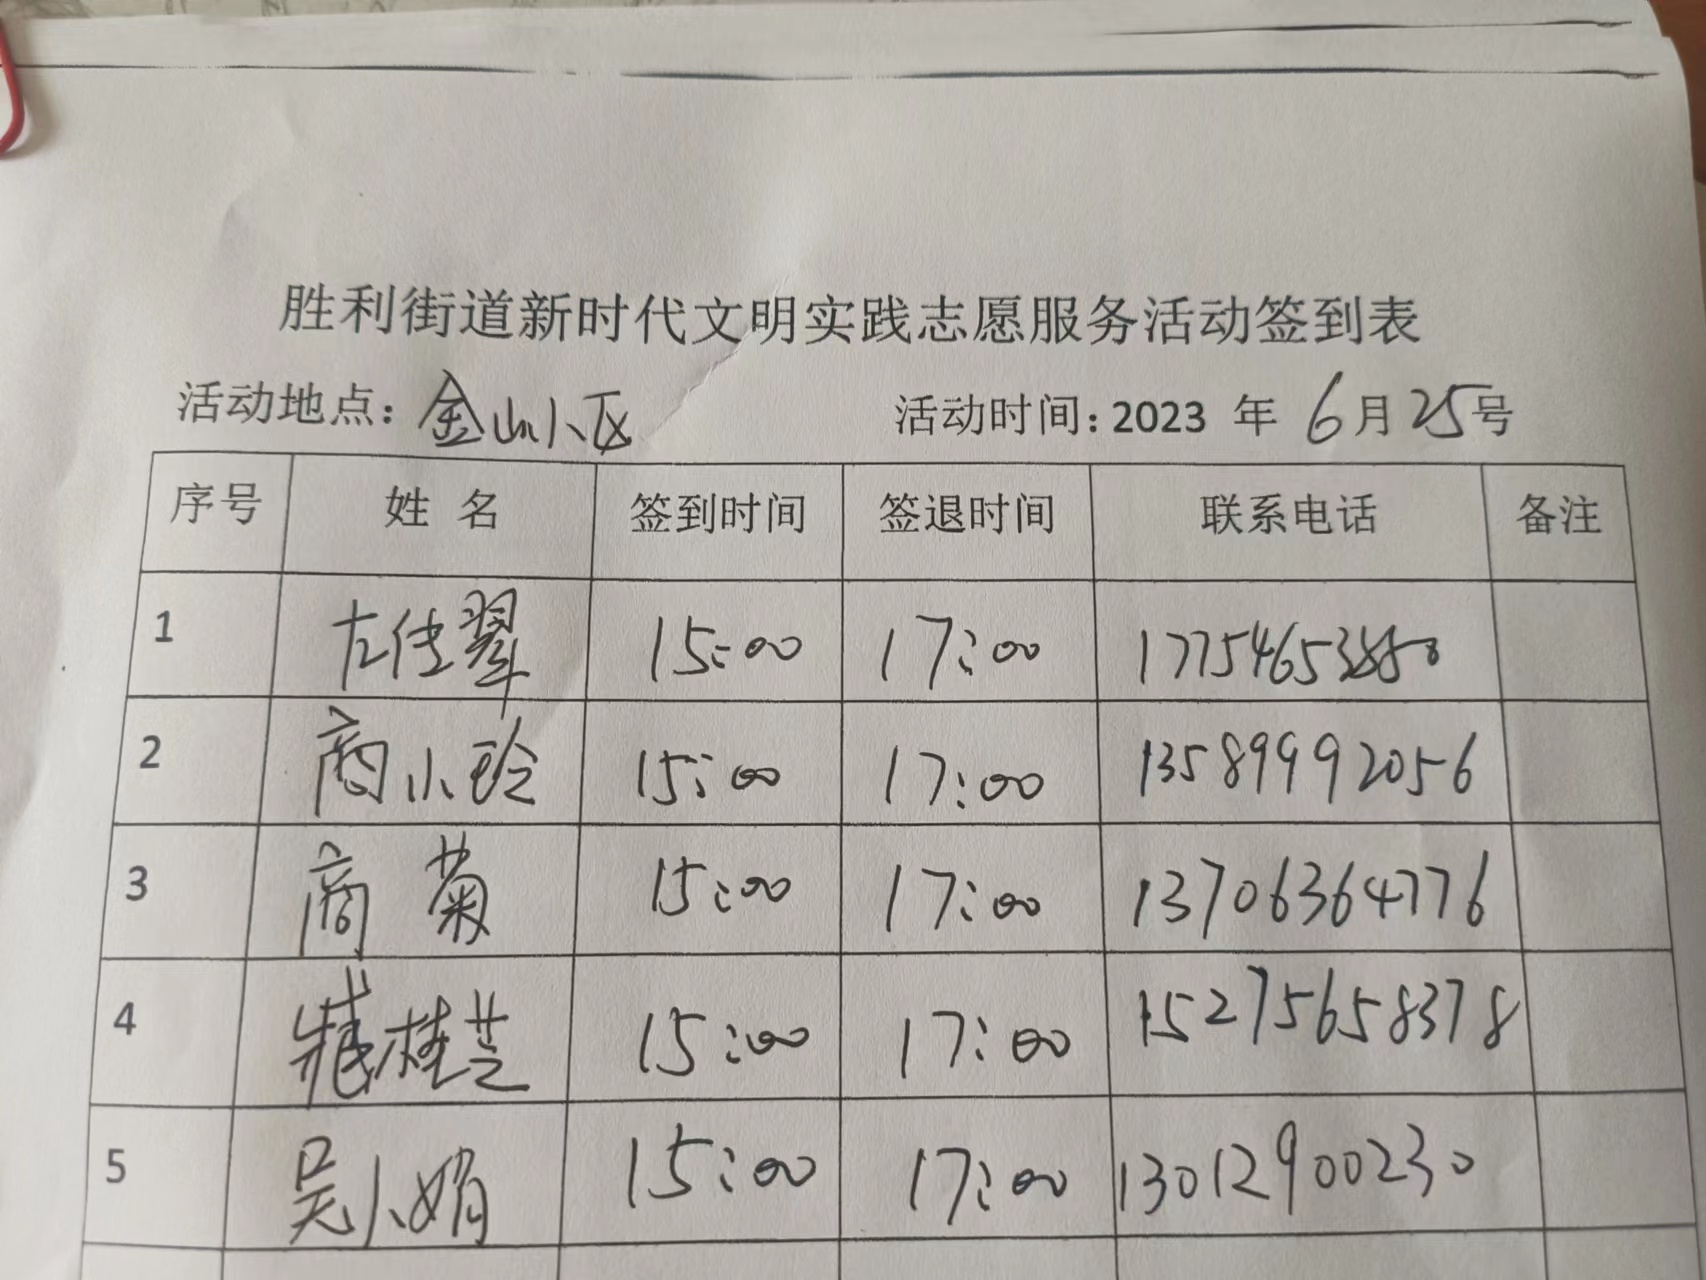 胜利街道新时代文明实践志愿服务活动签到表
活动地点: 金山小区 活动时间: 2023 年 6月25号
序号 姓名 签到时间 签退时间 联系电话 备注
1 左佳翠 15:00 17:00
2 商小玲 15:00 17:00 13589992056
3 商菊 15:00 17:00 13706364776
4 臧桂芝 15:00 17:00 15275658378
5 吴小娟 15:00 17:00 13012900230